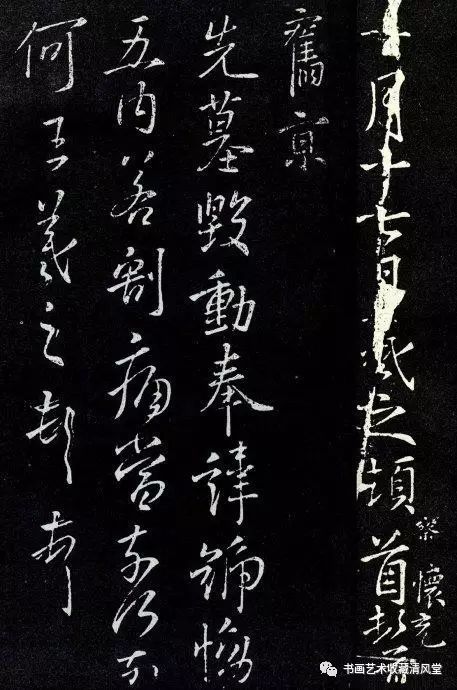 月十七日羲之頓首頓首
察懷充
舊京
先墓毀動奉諱號慟
五內若割痛當奈何奈
何王羲之頓首
书画艺术收藏清风堂